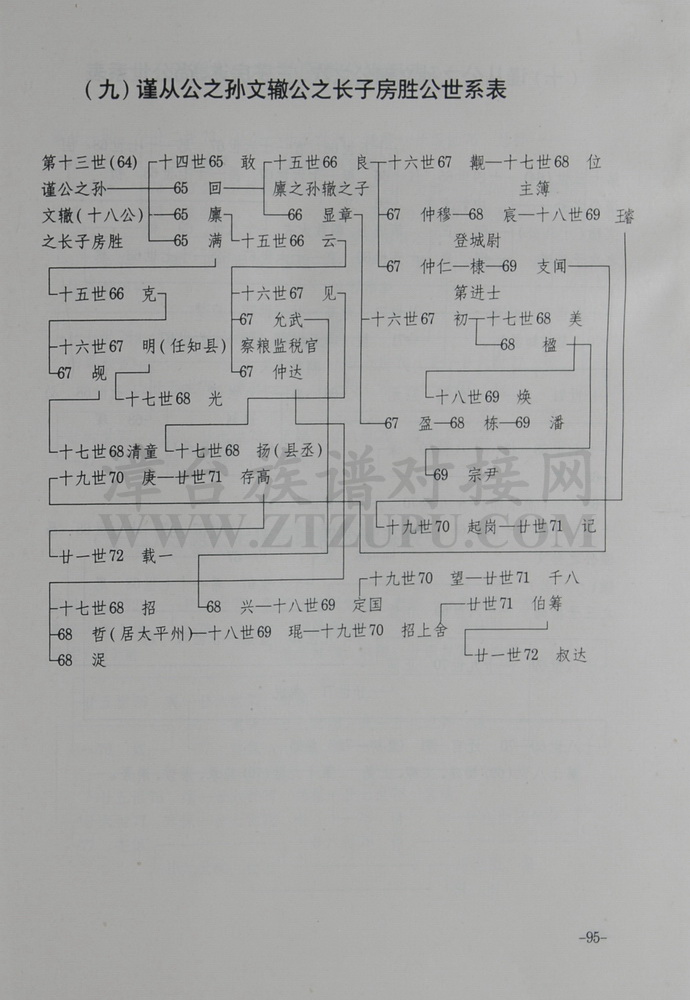 (九)谨从公之孙文辙公之长子房胜公世系表
第十三世(64) 十四世65 敢 十五世66 良 十六世67 觀 十七世68 位
谨公之孙 65 回 廪之孙辙之子 主簿
文辙(十八公) 65 廪 66 显章 67 仲穆 68 宸 十八世69 王睿
之长子房胜 65 满 十五世66 云 登城尉
67 仲仁 棣 69 支闻
十五世66 克 十六世67 见 第进士
67 允武 十六世67 初 十七世68 美
十六世67 明(任知县) 察粮监税官 68 楹
67 觇 67 仲达
十七世68 光 十八世69 焕
67 盈 68 栋 69 潘
十七世68清童 十七世68 扬(县丞)
十九世70 庚 廿世71 存高 69 宗尹
漳台族谱对接网
WWW.ZTZUPU.COM
十九世70 起岗 廿世71 记
廿一世72 载一
十九世70 望 廿世71 千八
十七世68 招 68 兴 十八世69 定国 廿世71 伯筹
68 哲(居太平州) 十八世69 琨 十九世70 招上舍
68 浞 廿一世72 叔达
-95-